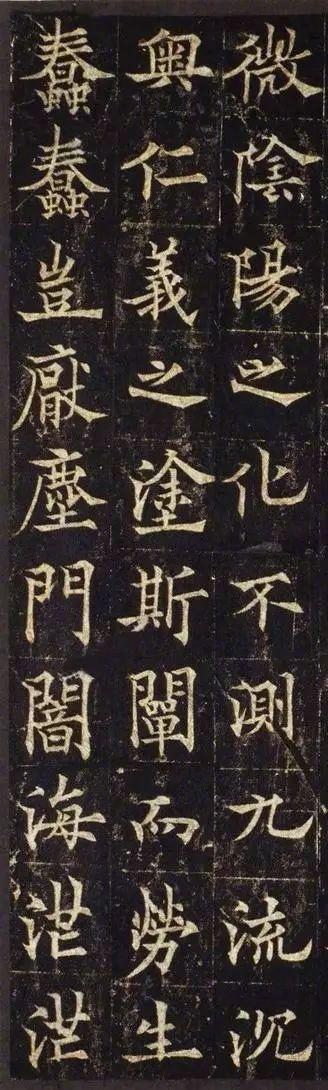 微陰陽之化不測九流沉
奧仁義之塗斯闡而勞生
蠢蠢豈厭塵門闇海茫茫